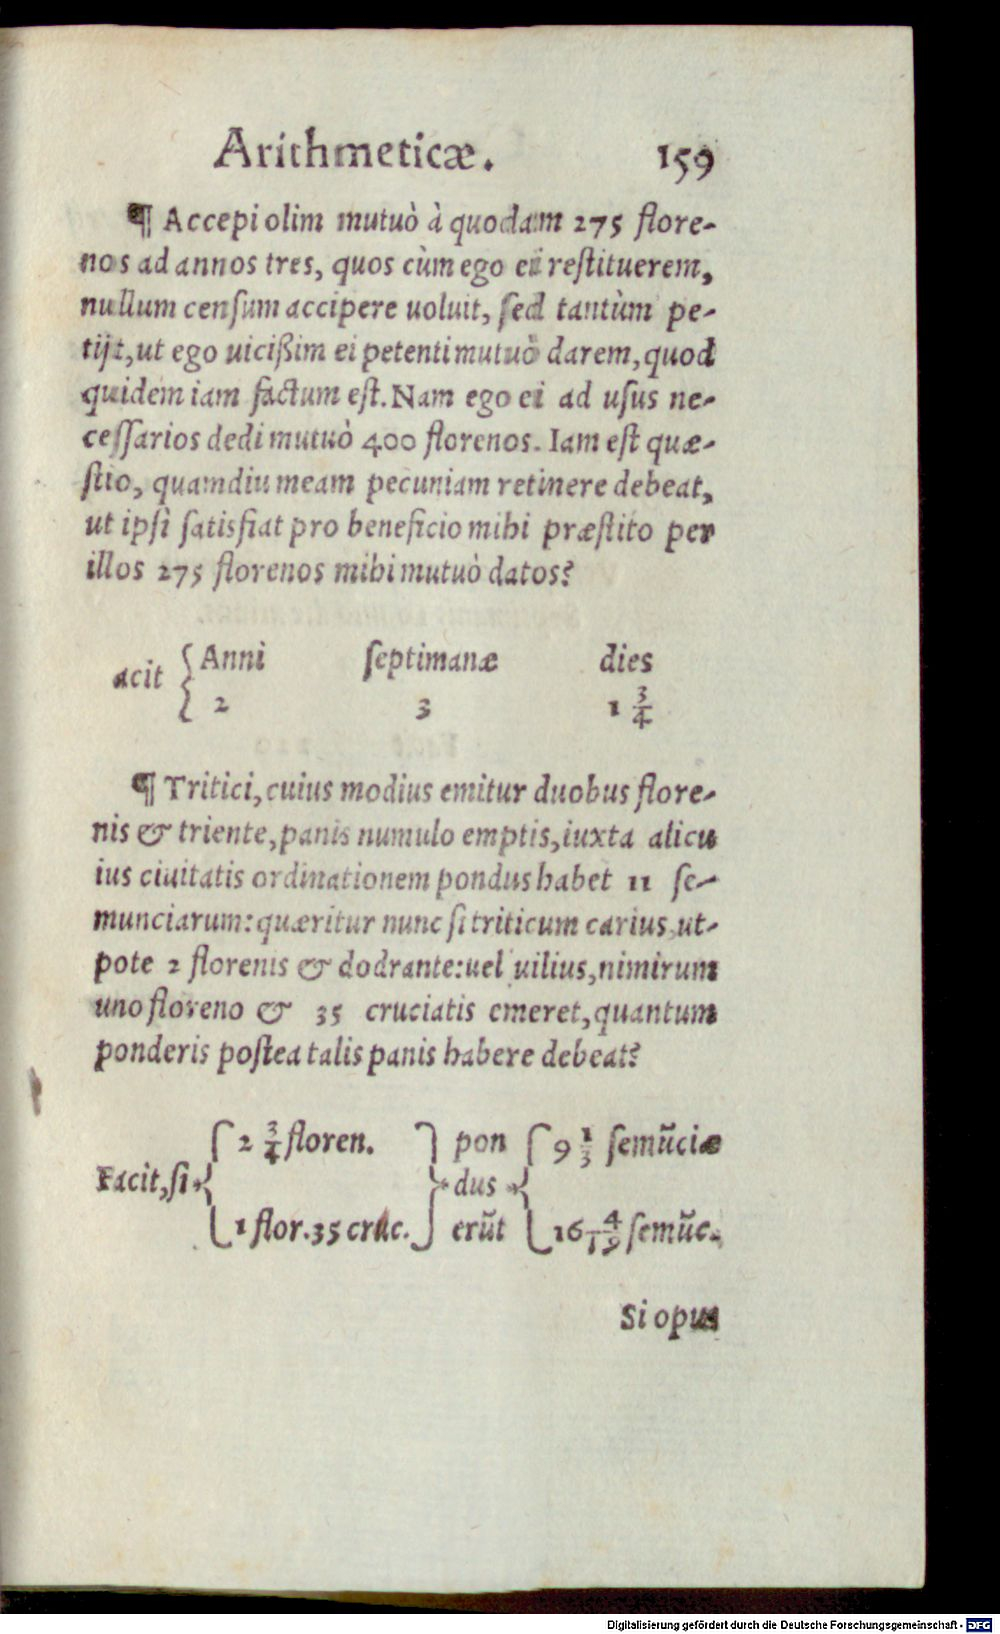 Arithmeticæ. 159
¶ Accepi olim mutuò à quodam 275 flore-
nos ad annos tres, quos cùm ego ei reſtituerem,
nullum cenſum accipere uoluit, ſed tantùm pe-
tijt, ut ego uicißim ei petenti mutuò darem, quod
quidem iam factum eſt. Nam ego ei ad uſus ne-
ceſſarios dedi mutuò 400 florenos. Iam eſt quæ-
ſtio, quamdiu meam pecuniam retinere debeat,
ut ipſi ſatisfiat pro beneficio mihi præſtito per
illos 275 florenos mihi mutuò datos?
acit { Anni ſeptimanæ dies
2 3 1 3/4
¶ Tritici, cuius modius emitur duobus flore-
nis & triente, panis numulo emptis, iuxta alicu
ius ciuitatis ordinationem pondus habet 11 ſe-
munciarum: quæritur nunc ſi triticum carius, ut-
pote 2 florenis & dodrante: uel uilius, nimirum
uno floreno & 35 cruciatis emeret, quantum
ponderis poſtea talis panis habere debeat?
2 3/4 floren. pon 9 1/3 ſemũciæ
Facit, ſi dus
1 flor. 35 cruc. erũt 16 4/19 ſemũc.
Si opus
Digitalisierung gefördert durch die Deutsche Forschungsgemeinschaft - DFG